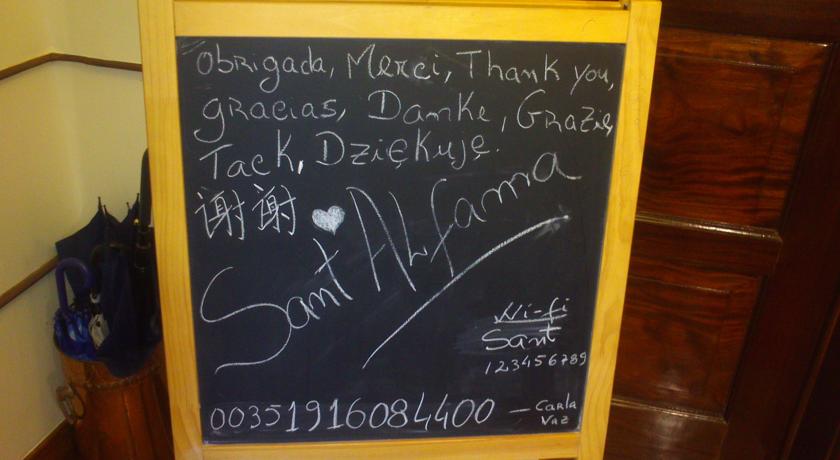 Obrigada, Merci, Thank you,
gracias, Danke, Grazie,
Tack, Dziękuję.
谢谢
Sant ALfama
Wi-fi
Sant
123456789
00351916084400 — Carla
Vaz